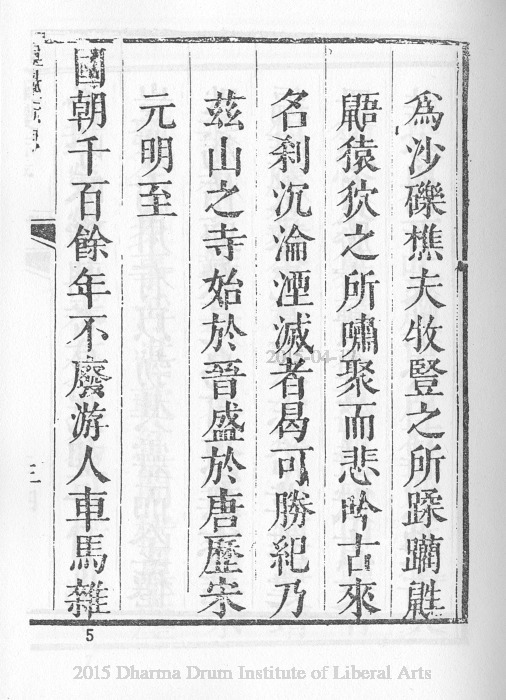 為沙礫樵夫牧豎之所蹂躪鼪
鼯猿狖之所嘯聚而悲吟古來
名剎沉淪湮滅者曷可勝紀乃
茲山之寺始於晉盛於唐歷宋
元明至
國朝千百餘年不廢游人車馬雜
三
5
2015 Dharma Drum Institute of Liberal Arts